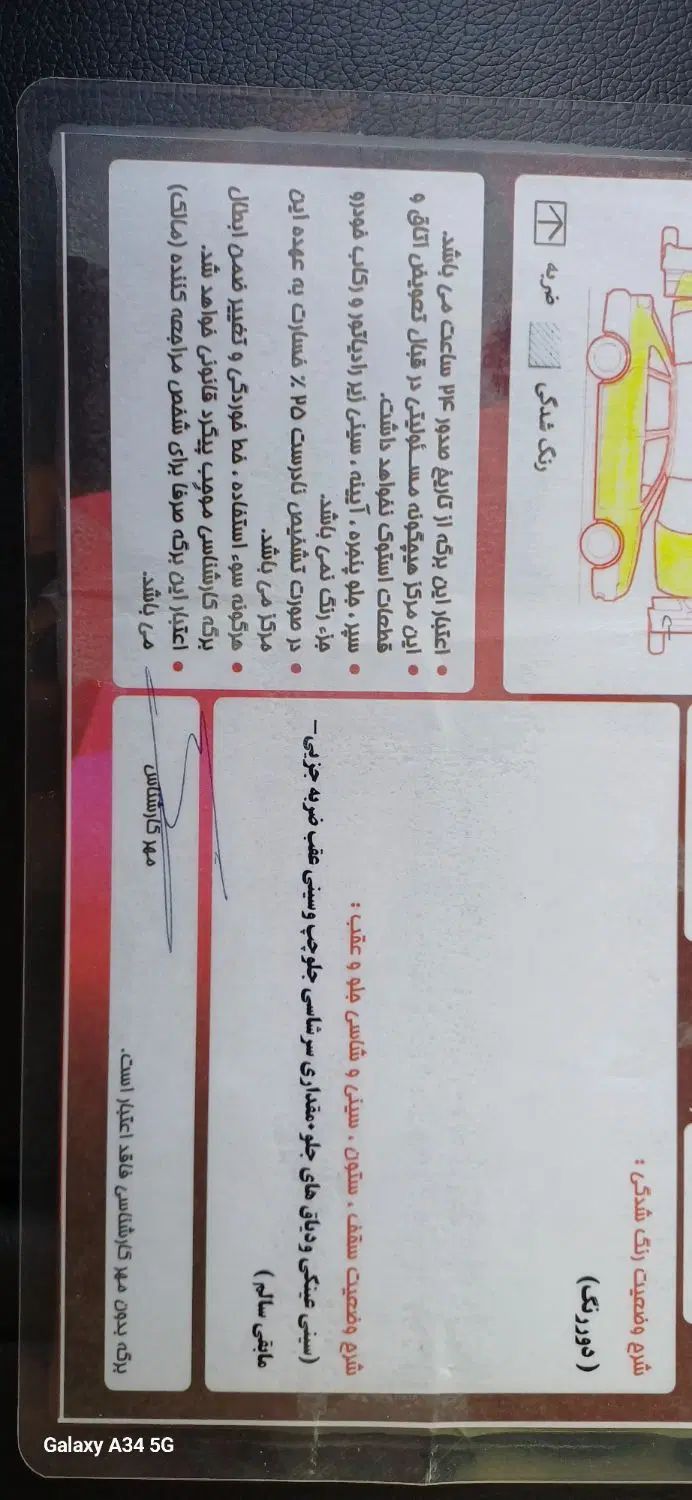 ضربه
رنگ شدگی
• اعتبار این برگه از تاریخ صدور ۲۴ ساعت می باشد.
• این مرکز هیچگونه مسئولیتی در قبال تعویض اتاق و
قطعات استوک نخواهد داشت.
• سپر ، جلو پنجره ، آیینه ، سینی زیر رادیاتور و رکاب خودرو
جزء رنگ نمی باشد.
• در صورت تشخیص نادرست ۲۵ ٪ خسارت به عهده این
مرکز می باشد.
• هرگونه سوء استفاده ، خط خوردگی و تغییر ضمن ابطال
برگه کارشناسی موجب پیگرد قانونی خواهد شد.
• اعتبار این برگه صرفا برای شخص مراجعه کننده (مالک)
می باشد.
شرح وضعیت رنگ شدگی :
( دوررنگ)
شرح وضعیت سقف ، ستون ، سینی و شاسی جلو و عقب :
(سینی عینکی ودیاق های جلو+مقداری سرشاسی جلوچپ وسینی عقب ضربه جزیی –
مابقی سالم )
مهر کارشناس
برگه بدون مهر کارشناسی فاقد اعتبار است.
Galaxy A34 5G